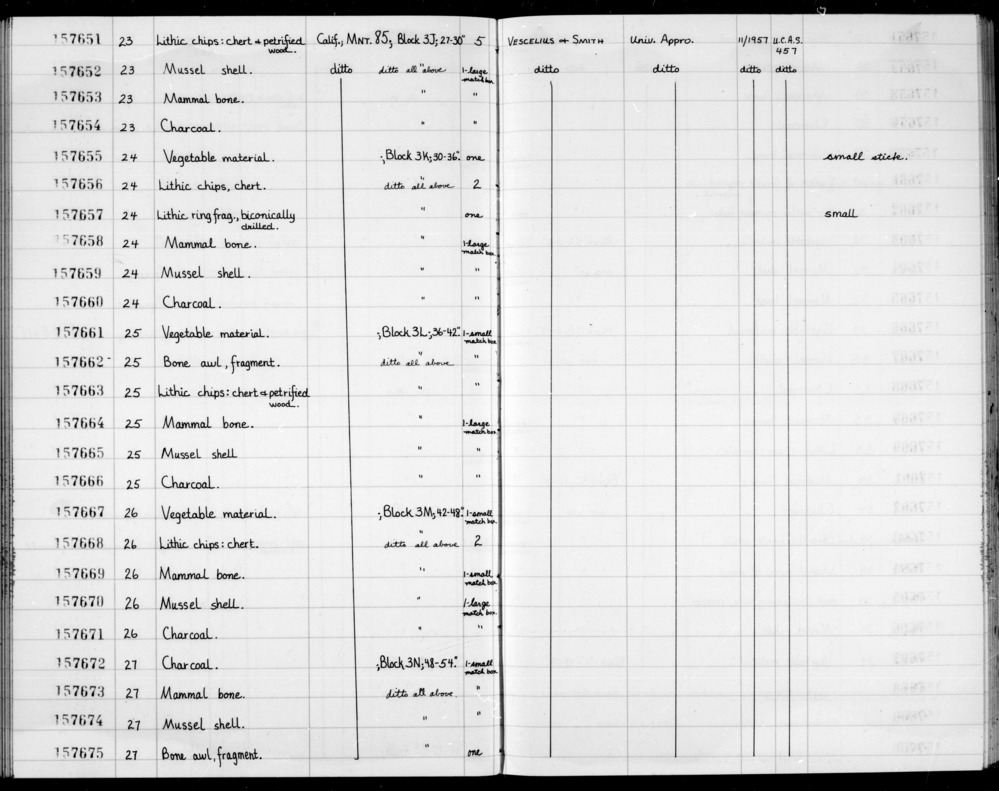 157651 23 Lithic chips: chert & petrified wood. Calif., MNT. 85, Block 3J; 27-30" 5 VESCELIUS & SMITH Univ. Appro. 11/1957 U.C.A.S. 457
157652 23 Mussel shell. ditto ditto all above 1-large match box ditto ditto ditto ditto
157653 23 Mammal bone. " "
157654 23 Charcoal. " "
157655 24 Vegetable material. ; Block 3K; 30-36". one small stick.
157656 24 Lithic chips, chert. ditto all above 2
157657 24 Lithic ring frag., biconically drilled. " one small
157658 24 Mammal bone. " 1-large match box
157659 24 Mussel shell. " "
157660 24 Charcoal. " "
157661 25 Vegetable material. ; Block 3L; 36-42". 1-small match box
157662 25 Bone awl, fragment. ditto all above "
157663 25 Lithic chips: chert & petrified wood. " "
157664 25 Mammal bone. " 1-large match box
157665 25 Mussel shell " "
157666 25 Charcoal. " "
157667 26 Vegetable material. ; Block 3M; 42-48". 1-small match box
157668 26 Lithic chips: chert. ditto all above 2
157669 26 Mammal bone. " 1-small match box
157670 26 Mussel shell. " 1-large match box
157671 26 Charcoal. " "
157672 27 Charcoal. ; Block 3N; 48-54". 1-small match box
157673 27 Mammal bone. ditto all above. "
157674 27 Mussel shell. " "
157675 27 Bone awl, fragment. " one